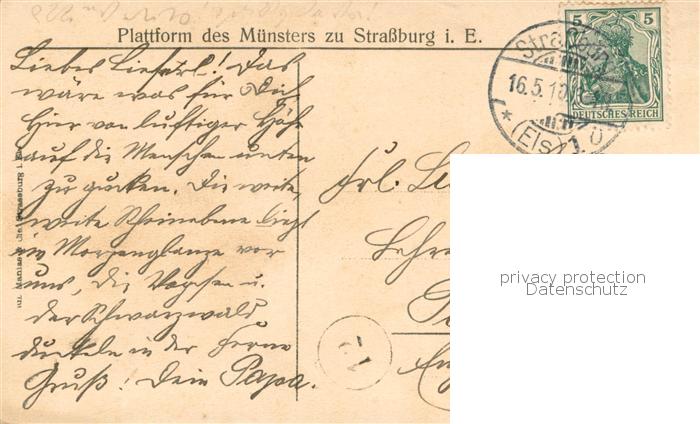 Plattform des Münsters zu Straßburg i. E.
5 5
Straßburg
16.5.10
DEUTSCHES REICH
* (Els.) 1
Liebes Lieserl! Das
wäre was für Dich,
Hier von luftiger Höhe
auf die Menschen unten
zu gucken. Die weite,
weite Rheinebene liegt
im Morgenglanze vor
uns, die Vogesen u.
der Schwarzwald
dunkeln in der Ferne
Gruß! Dein Papa.
Frl.
Lehre
privacy protection
Datenschutz